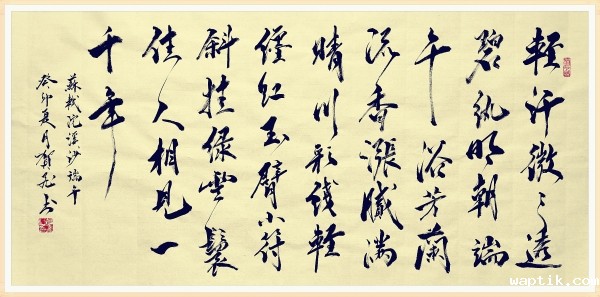 輕汗微々透
碧紈明朝端
午浴芳蘭
流香漲膩滿
晴川彩线輕
缠红玉臂小符
斜挂绿雲鬟
佳人相見一
千年
蘇軾浣溪沙端午
癸卯夏月賀飞书
waptik.com